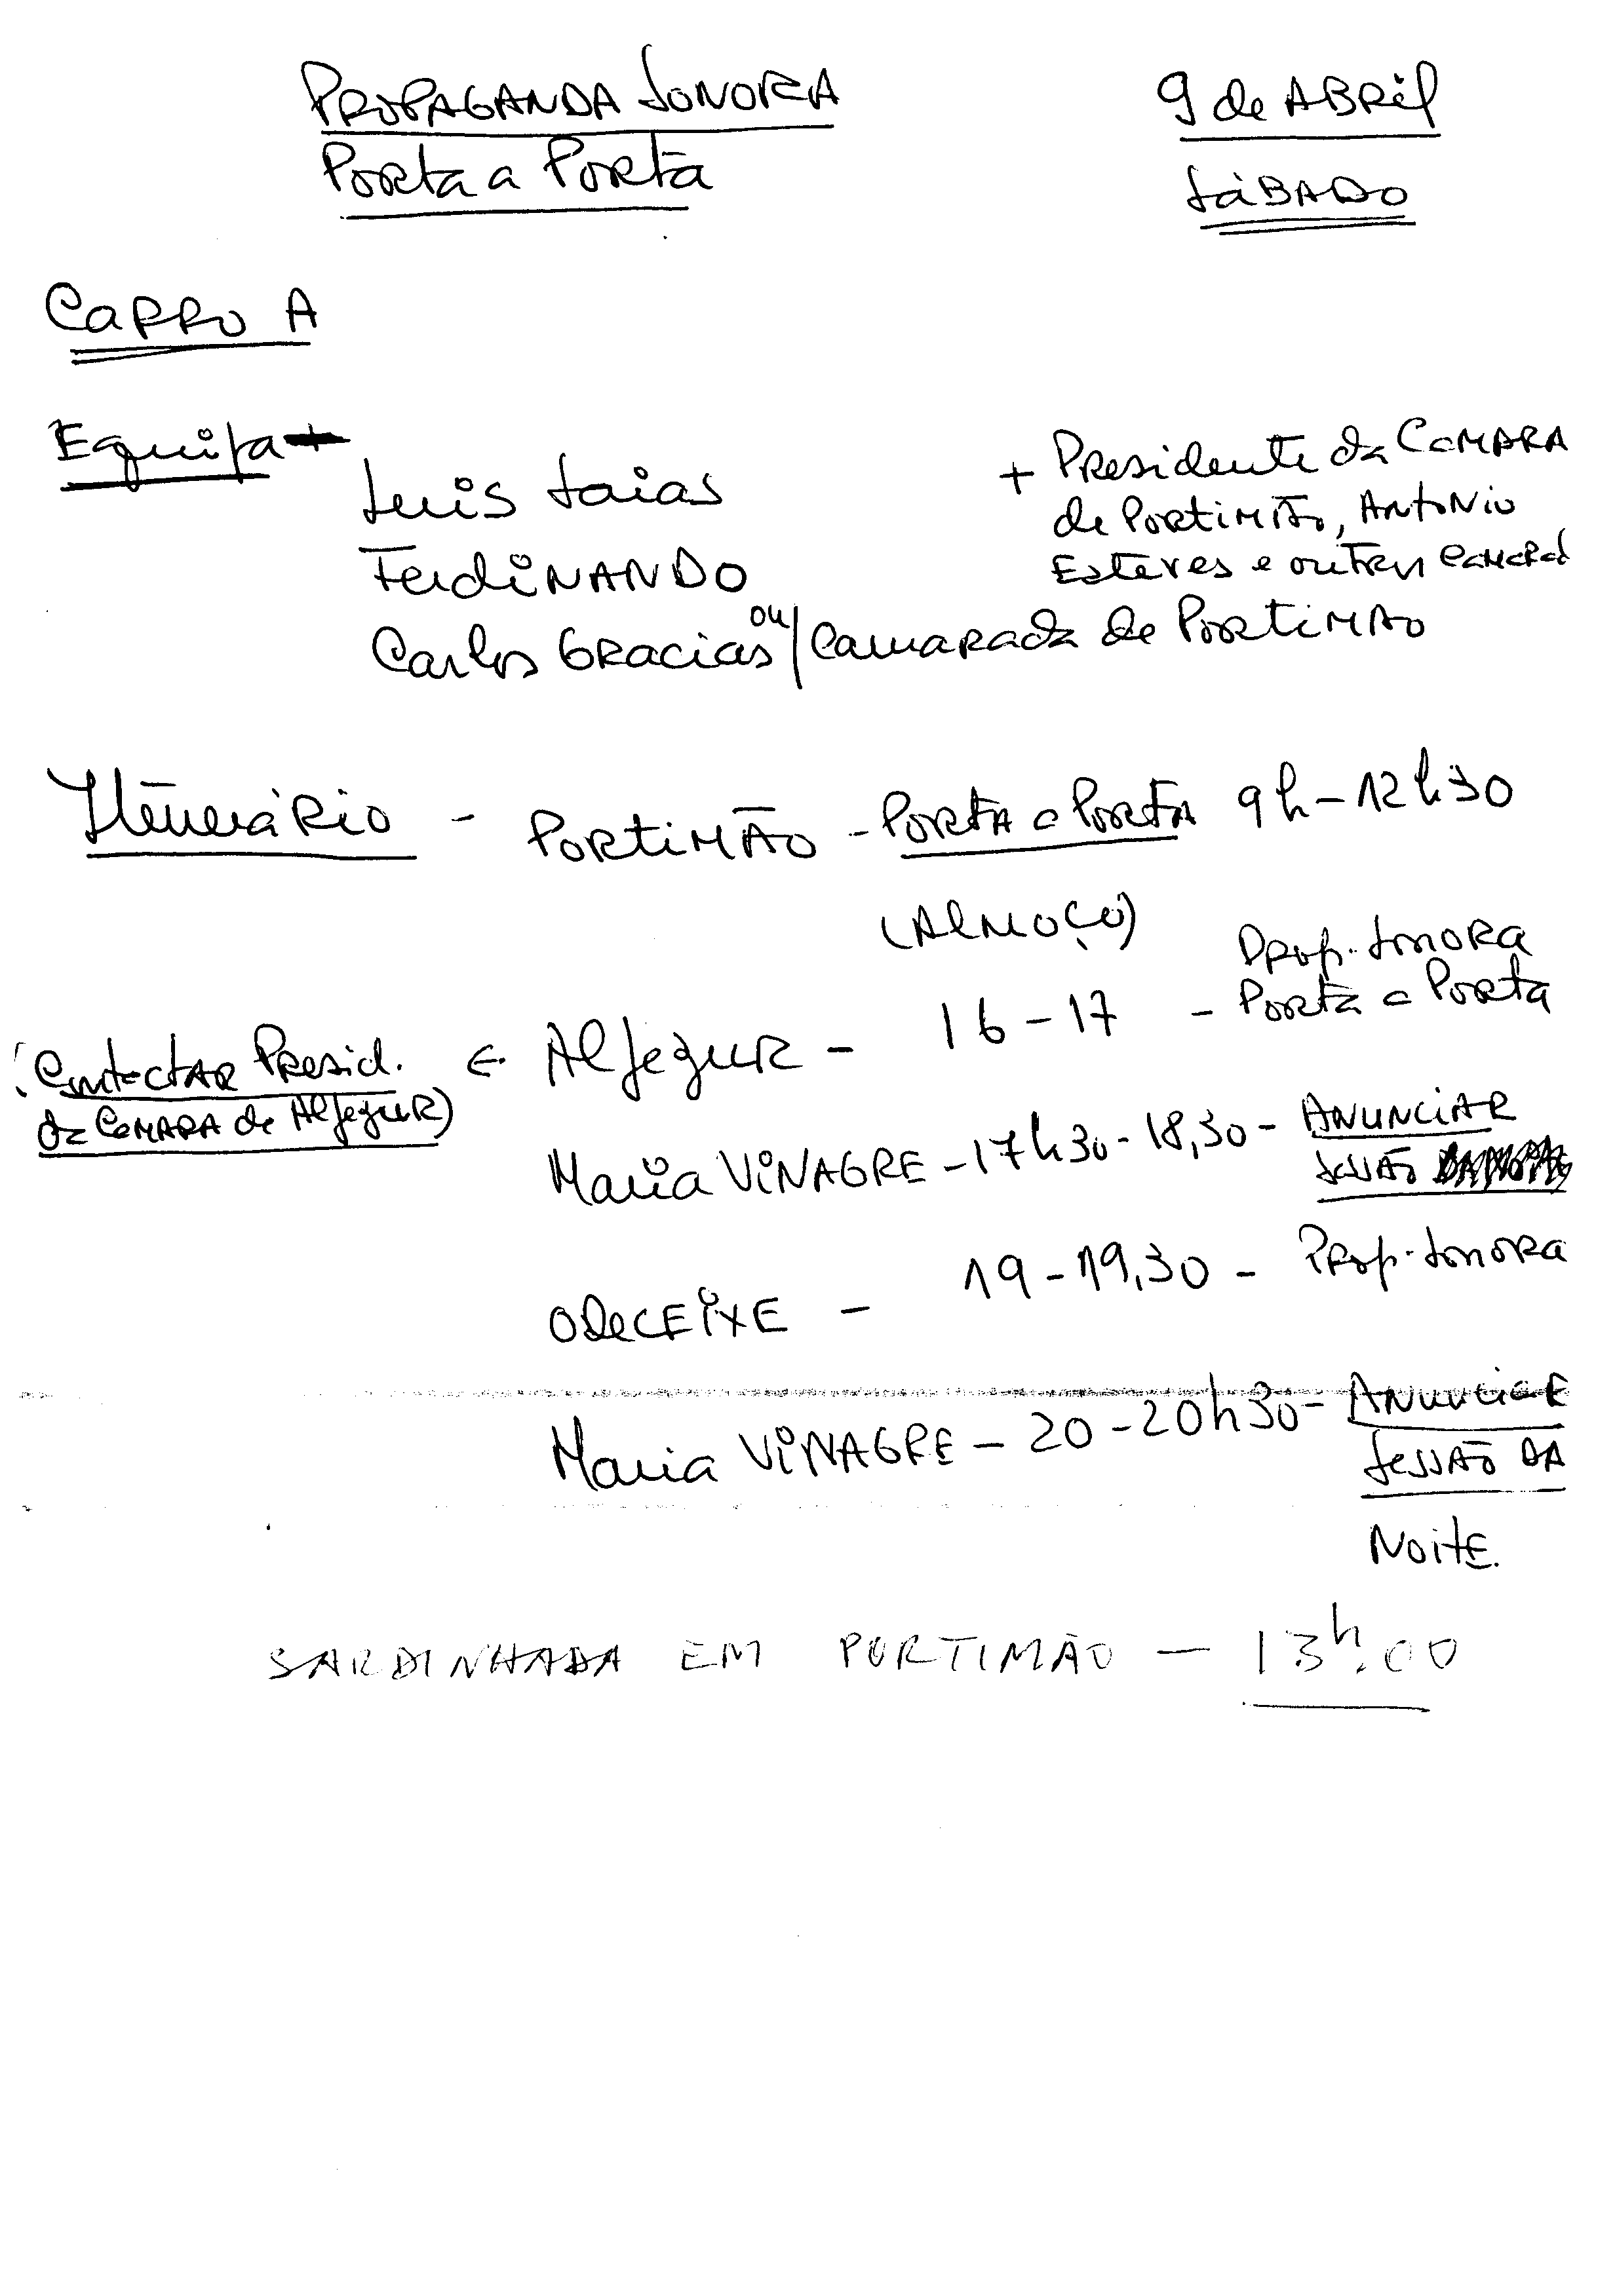 PROPAGANDA SONORA
Porta a Porta
9 de ABRil
SÁBADO
CARRO A
Equipa
Luis Saias
FerdiNANDO
Carlos GRACIAS ou / Camarada de PORTIMÃO
+ Presidente da CAMARA
de PortiMão, ANTONIO
Esteves e outros
Itenerário - PORTIMÃO - PORTA a PORTA 9h - 12h30
(AlMOÇO)
(Contactar Presid.
da CAMARA de AljezuR)
Aljezur - 16 - 17 - Prop. Sonora
Porta a Porta
Maria VINAGRE - 17h30 - 18,30 - ANUNCIAR
SESSÃO
ODeCEIXE - 19 - 19,30 - Prop. Sonora
Maria VINAGRE - 20 - 20h30 - ANUNCIAR
SESSÃO DA
NOITE.
SARDINHADA EM PORTIMÃO — 13h.00